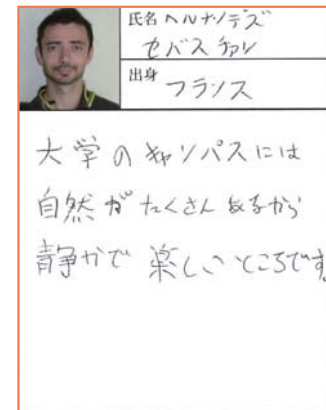 氏名 ヘルナンデズ
セバスチァン
出身 フランス
大学のキャンパスには
自然がたくさんあるから
静かで楽しいところです